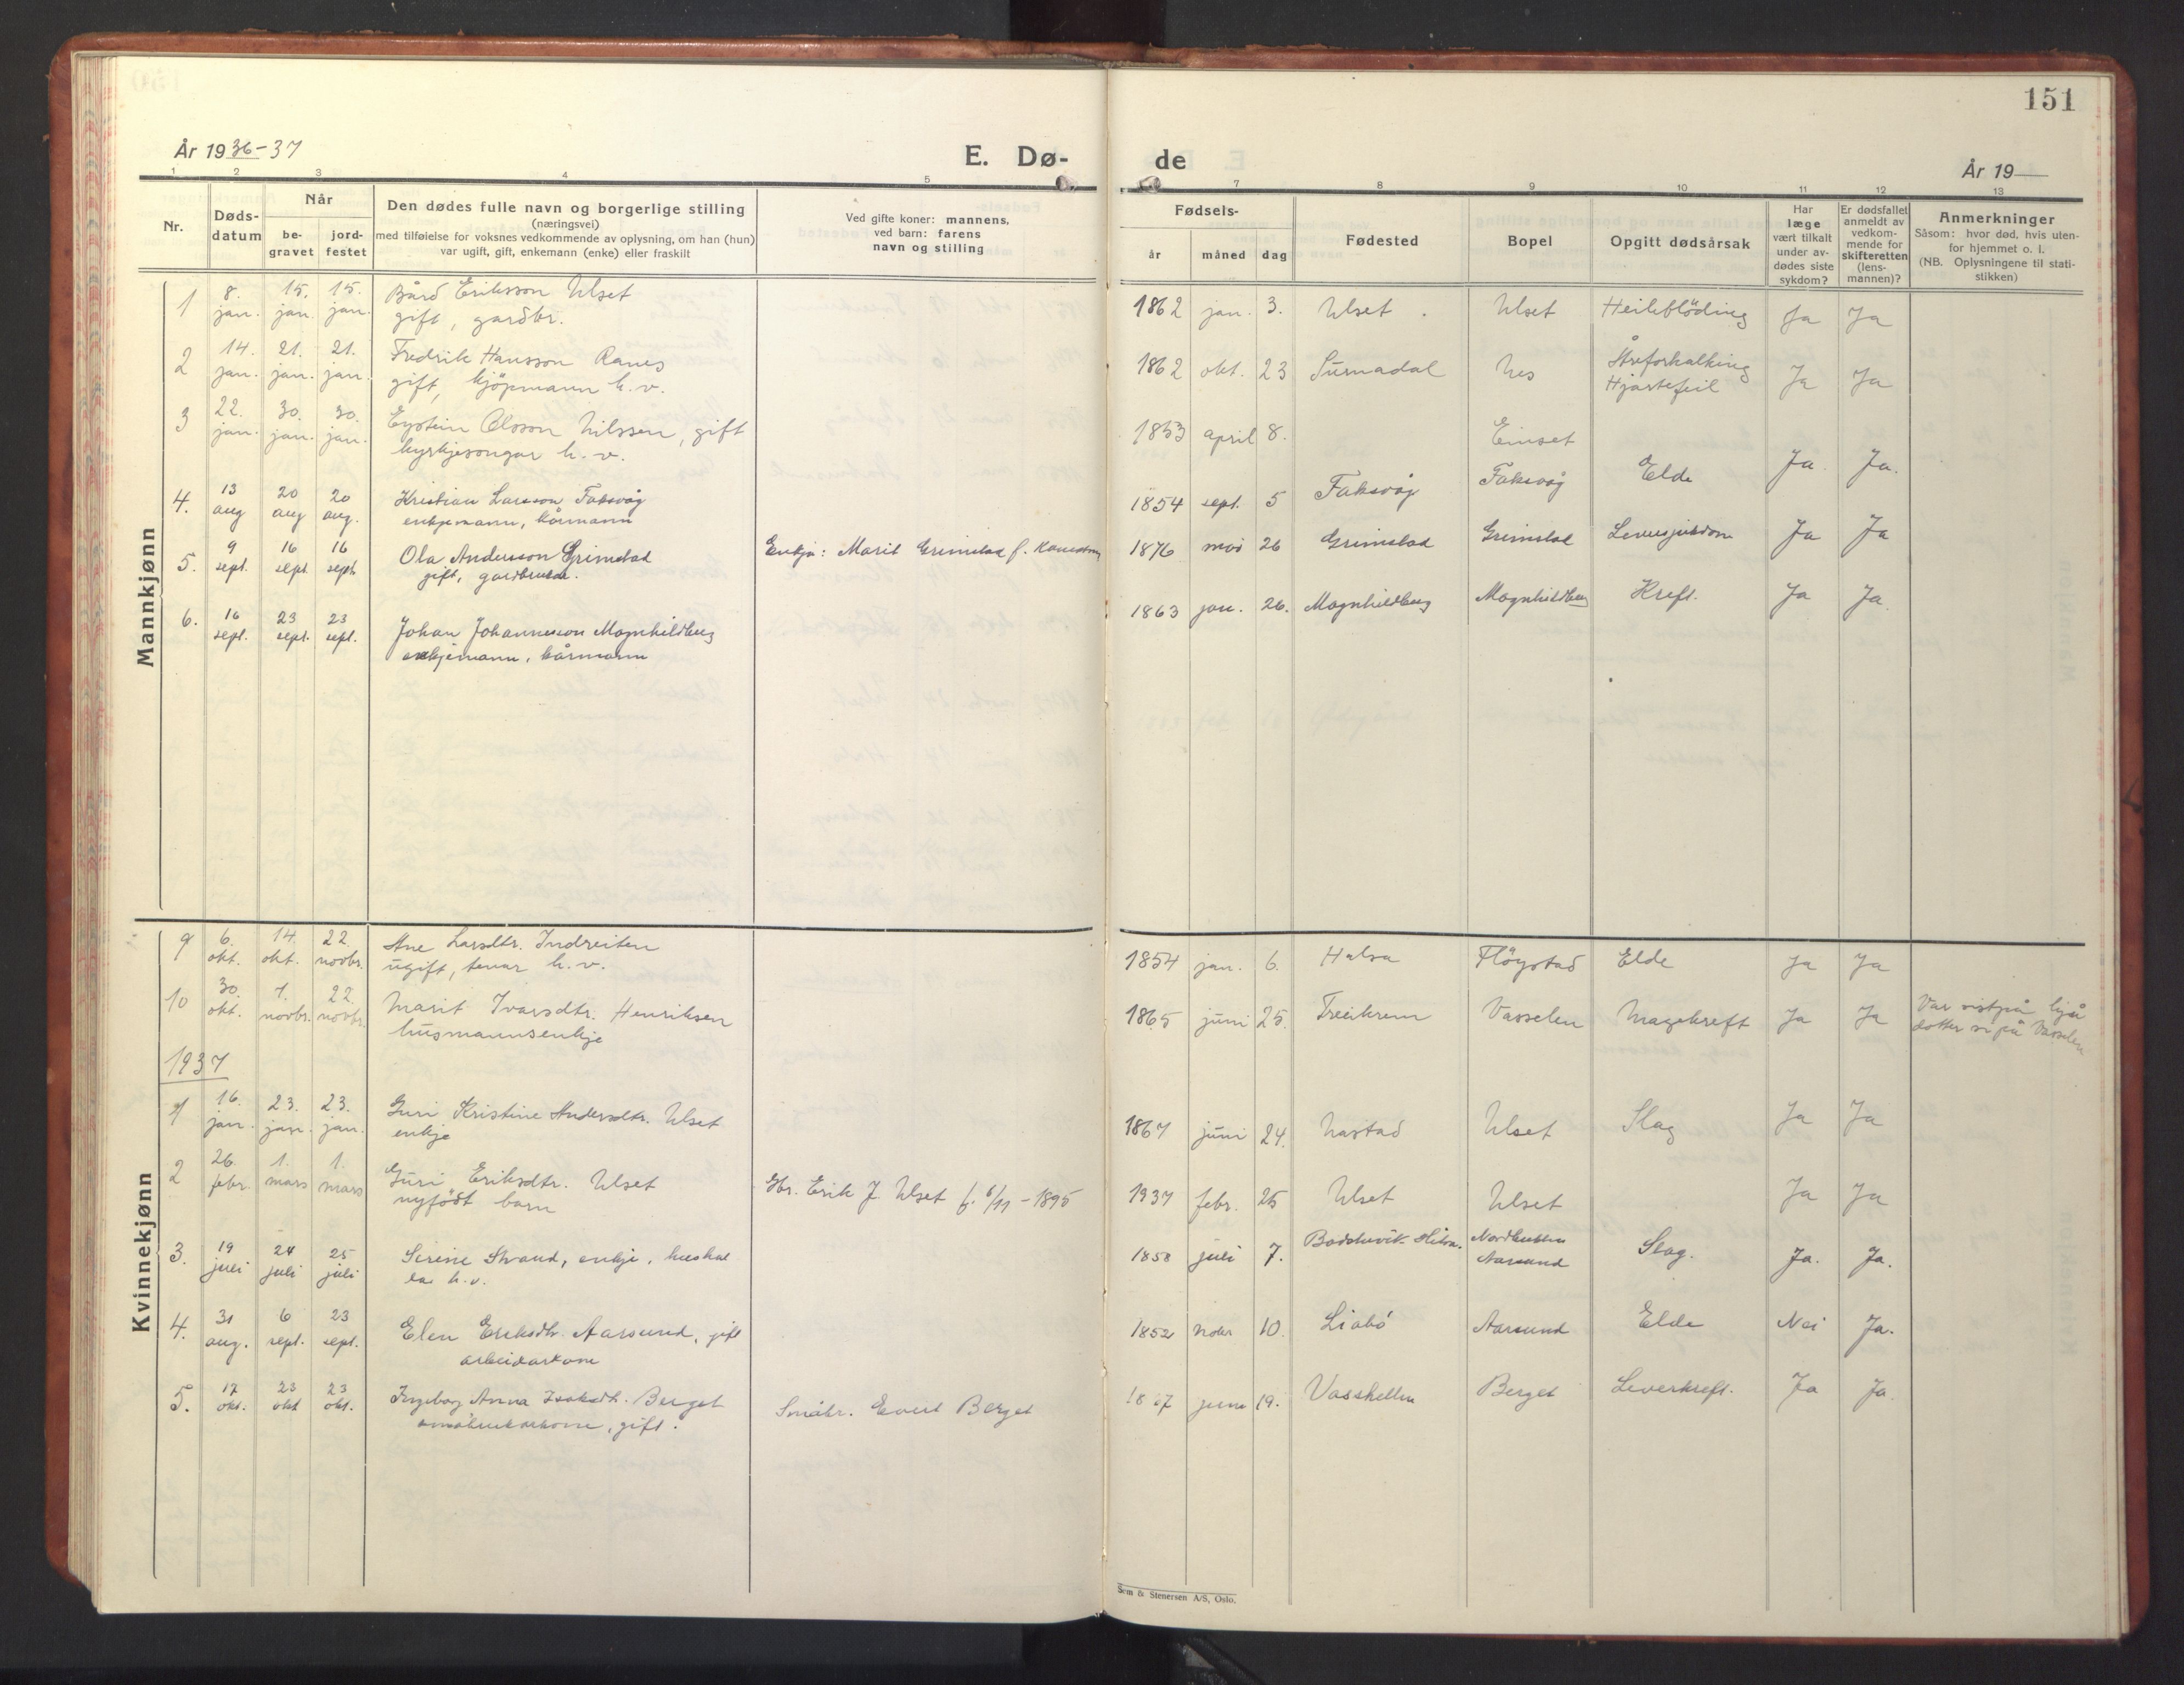 151
År 1936-37
E. Dø-
de
År 19
1 2 3 4 5 7 8 9 10 11 12 13
Nr.
Døds-
datum
Når
be-
gravet
jord-
festet
Den dødes fulle navn og borgerlige stilling
(næringsvei)
med tilføielse for voksnes vedkommende av oplysning, om han (hun)
var ugift, gift, enkemann (enke) eller fraskilt
Ved gifte koner: mannens,
ved barn: farens
navn og stilling
Fødsels-
år måned dag
Fødested
Bopel
Opgitt dødsårsak
Har
læge
vært tilkalt
under av-
dødes siste
sykdom?
Er dødsfallet
anmeldt av
vedkom-
mende for
skifteretten
(lens-
mannen)?
Anmerkninger
Såsom: hvor død, hvis uten-
for hjemmet o. l.
(NB. Oplysningene til stati-
stikken)
Mannkjønn
1 8. jan. 15. jan. 15. jan. Bård Eriksson Ulset 1862 jan. 3. Ulset Ulset Heileblöding Ja Ja
gift, gardbr.
2 14. jan. 21. jan. 21. jan. Fredrik Hansson Ranes 1862 okt. 23 Surnadal Nes Åreforkalking Ja Ja
gift, kjöpmann h. v. Hjartefeil
3 22. jan. 30. jan. 30. jan. Eystein Olsson Nilssen, gift 1853 april 8. Einset
kyrkjesongar h. v.
4. 13 aug 20 aug 20 aug. Kristian Larsson Faksvåg 1854 sept. 5 Faksvåg Faksvåg Elde Ja Ja.
enkjemann, kårmann
5. 9 sept. 16 sept. 16 sept. Ola Andersson Grimstad Enkja: Marit Grimstad f. 1876 mai 26 Grimstad Grimstad Leversjukdom Ja Ja
gift, gardbrukar.
6. 16 sept. 23 sept. 23 sept. Johan Johannesson Magnhildberg 1863 jan. 26. Magnhildberg Magnhildberg Kreft. Ja Ja.
enkjemann, kårmann
Kvinnekjønn
9 6. okt. 14. okt. 22. novbr. Ane Larsdtr. Indreiten 1854 jan. 6. Halsa Flöystad Elde Ja Ja
ugift, tenar h. v.
10 30. okt. 7. novbr. 22. novbr. Marit Ivarsdtr. Henriksen 1865 juni 25. Treekrem Vasselen Magekreft Ja Ja Var vist på hjå
husmannsenkje dotter si på Vasselen
1937
1 16. jan. 23. jan. 23. jan. Guri Kristine Andersdtr. Ulset 1867 juni 24. Nastad Ulset Slag Ja Ja
enkje
2 26. febr. 1. mars 1. mars Guri Eriksdtr. Ulset Gbr. Erik J. Ulset f. 6/11 - 1895 1937 febr. 25 Ulset Ulset Ja Ja
nyfödt barn
3. 19 juli 24 juli 25 juli Serine Strand, enkje, 1858 juli 7. Aarsund Slag. Ja. Ja.
h. v.
4. 31 aug. 6 sept. 23 sept. Elen Eriksdtr. Aarsund, gift 1852 10. Liabö Aarsund Elde Nei Ja.
arbeidarkone
5. 17 okt. 23 okt 23 okt. Ingeborg Anna Isaksdtr. Berget Småbr. Evert Berget juni 19. Vasskellen Berget Leverkreft. Ja Ja
småbrukarkone, gift.
Sem & Stenersen A/S, Oslo.